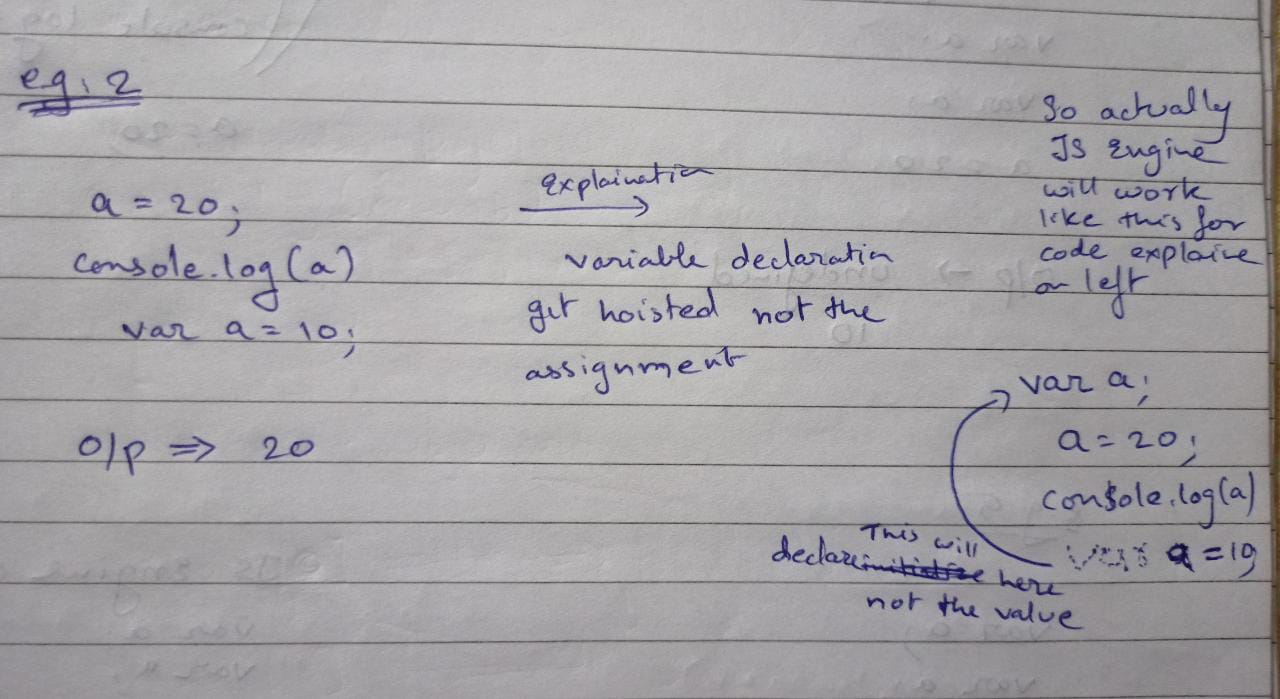 eg: 2
a = 20;
console.log(a)
var a = 10;
O/p ⇒ 20
Explaination
variable declaration
get hoisted not the
assignment
So actually
JS Engine
will work
like this for
code explaine
on left
var a;
a = 20;
console.log(a)
var a = 10
This will
declare here
not the value